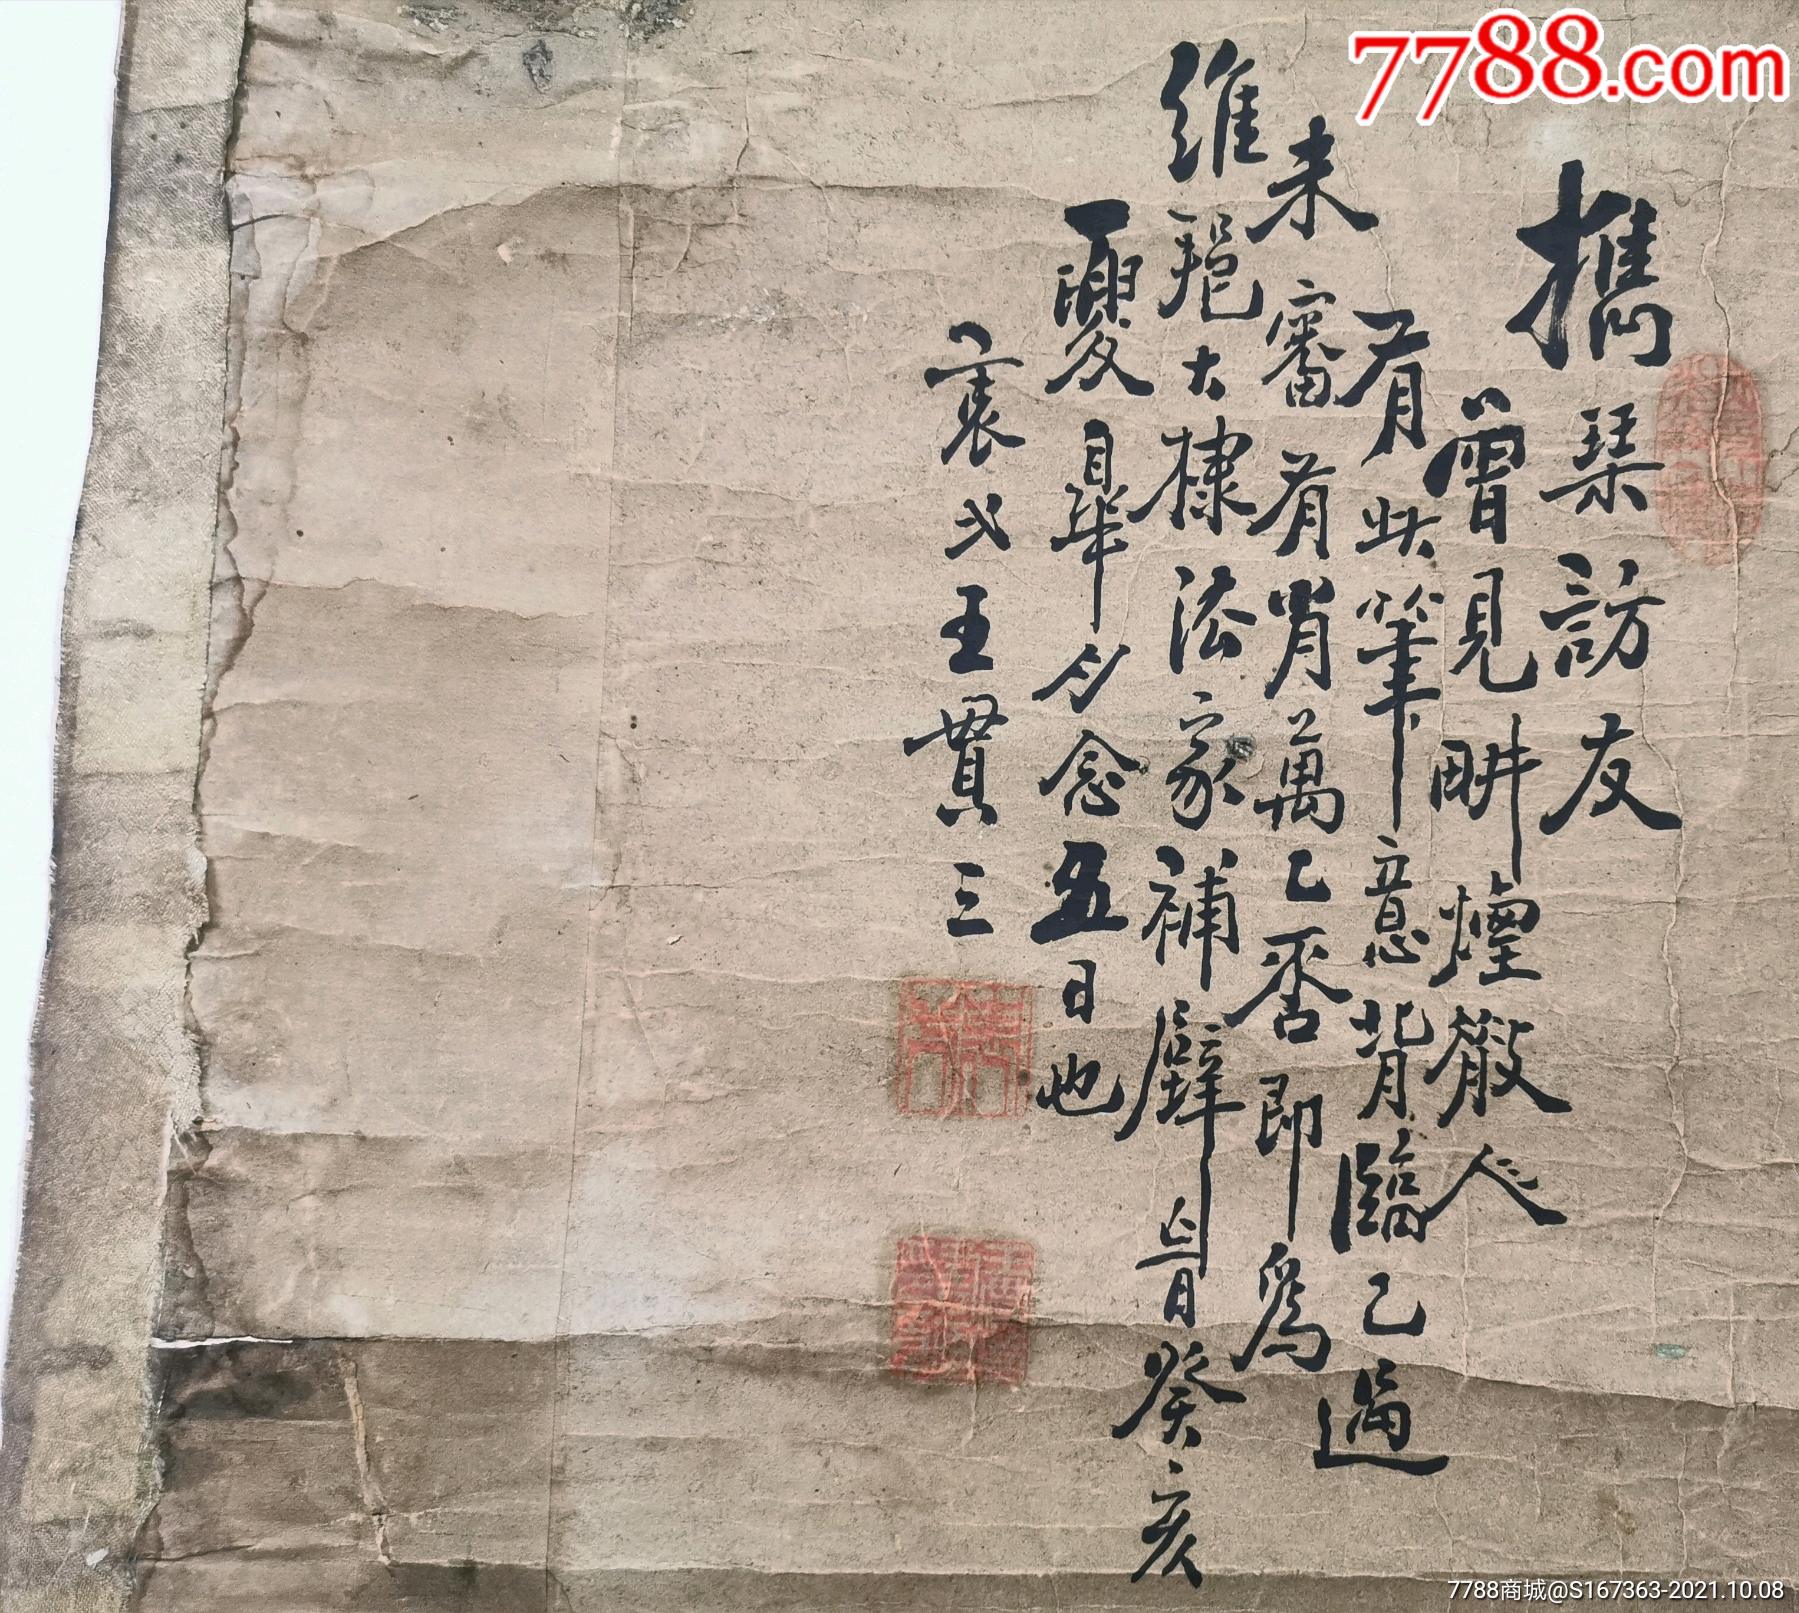 7788.com
攜琹訪友
曾見畊煙散人
有此筆意背臨乙過
未審有肖萬乙否即為
維 大棣法家補壁 旹癸亥
夏 月念五日也
王貫三
7788商城@S167363-2021.10.08